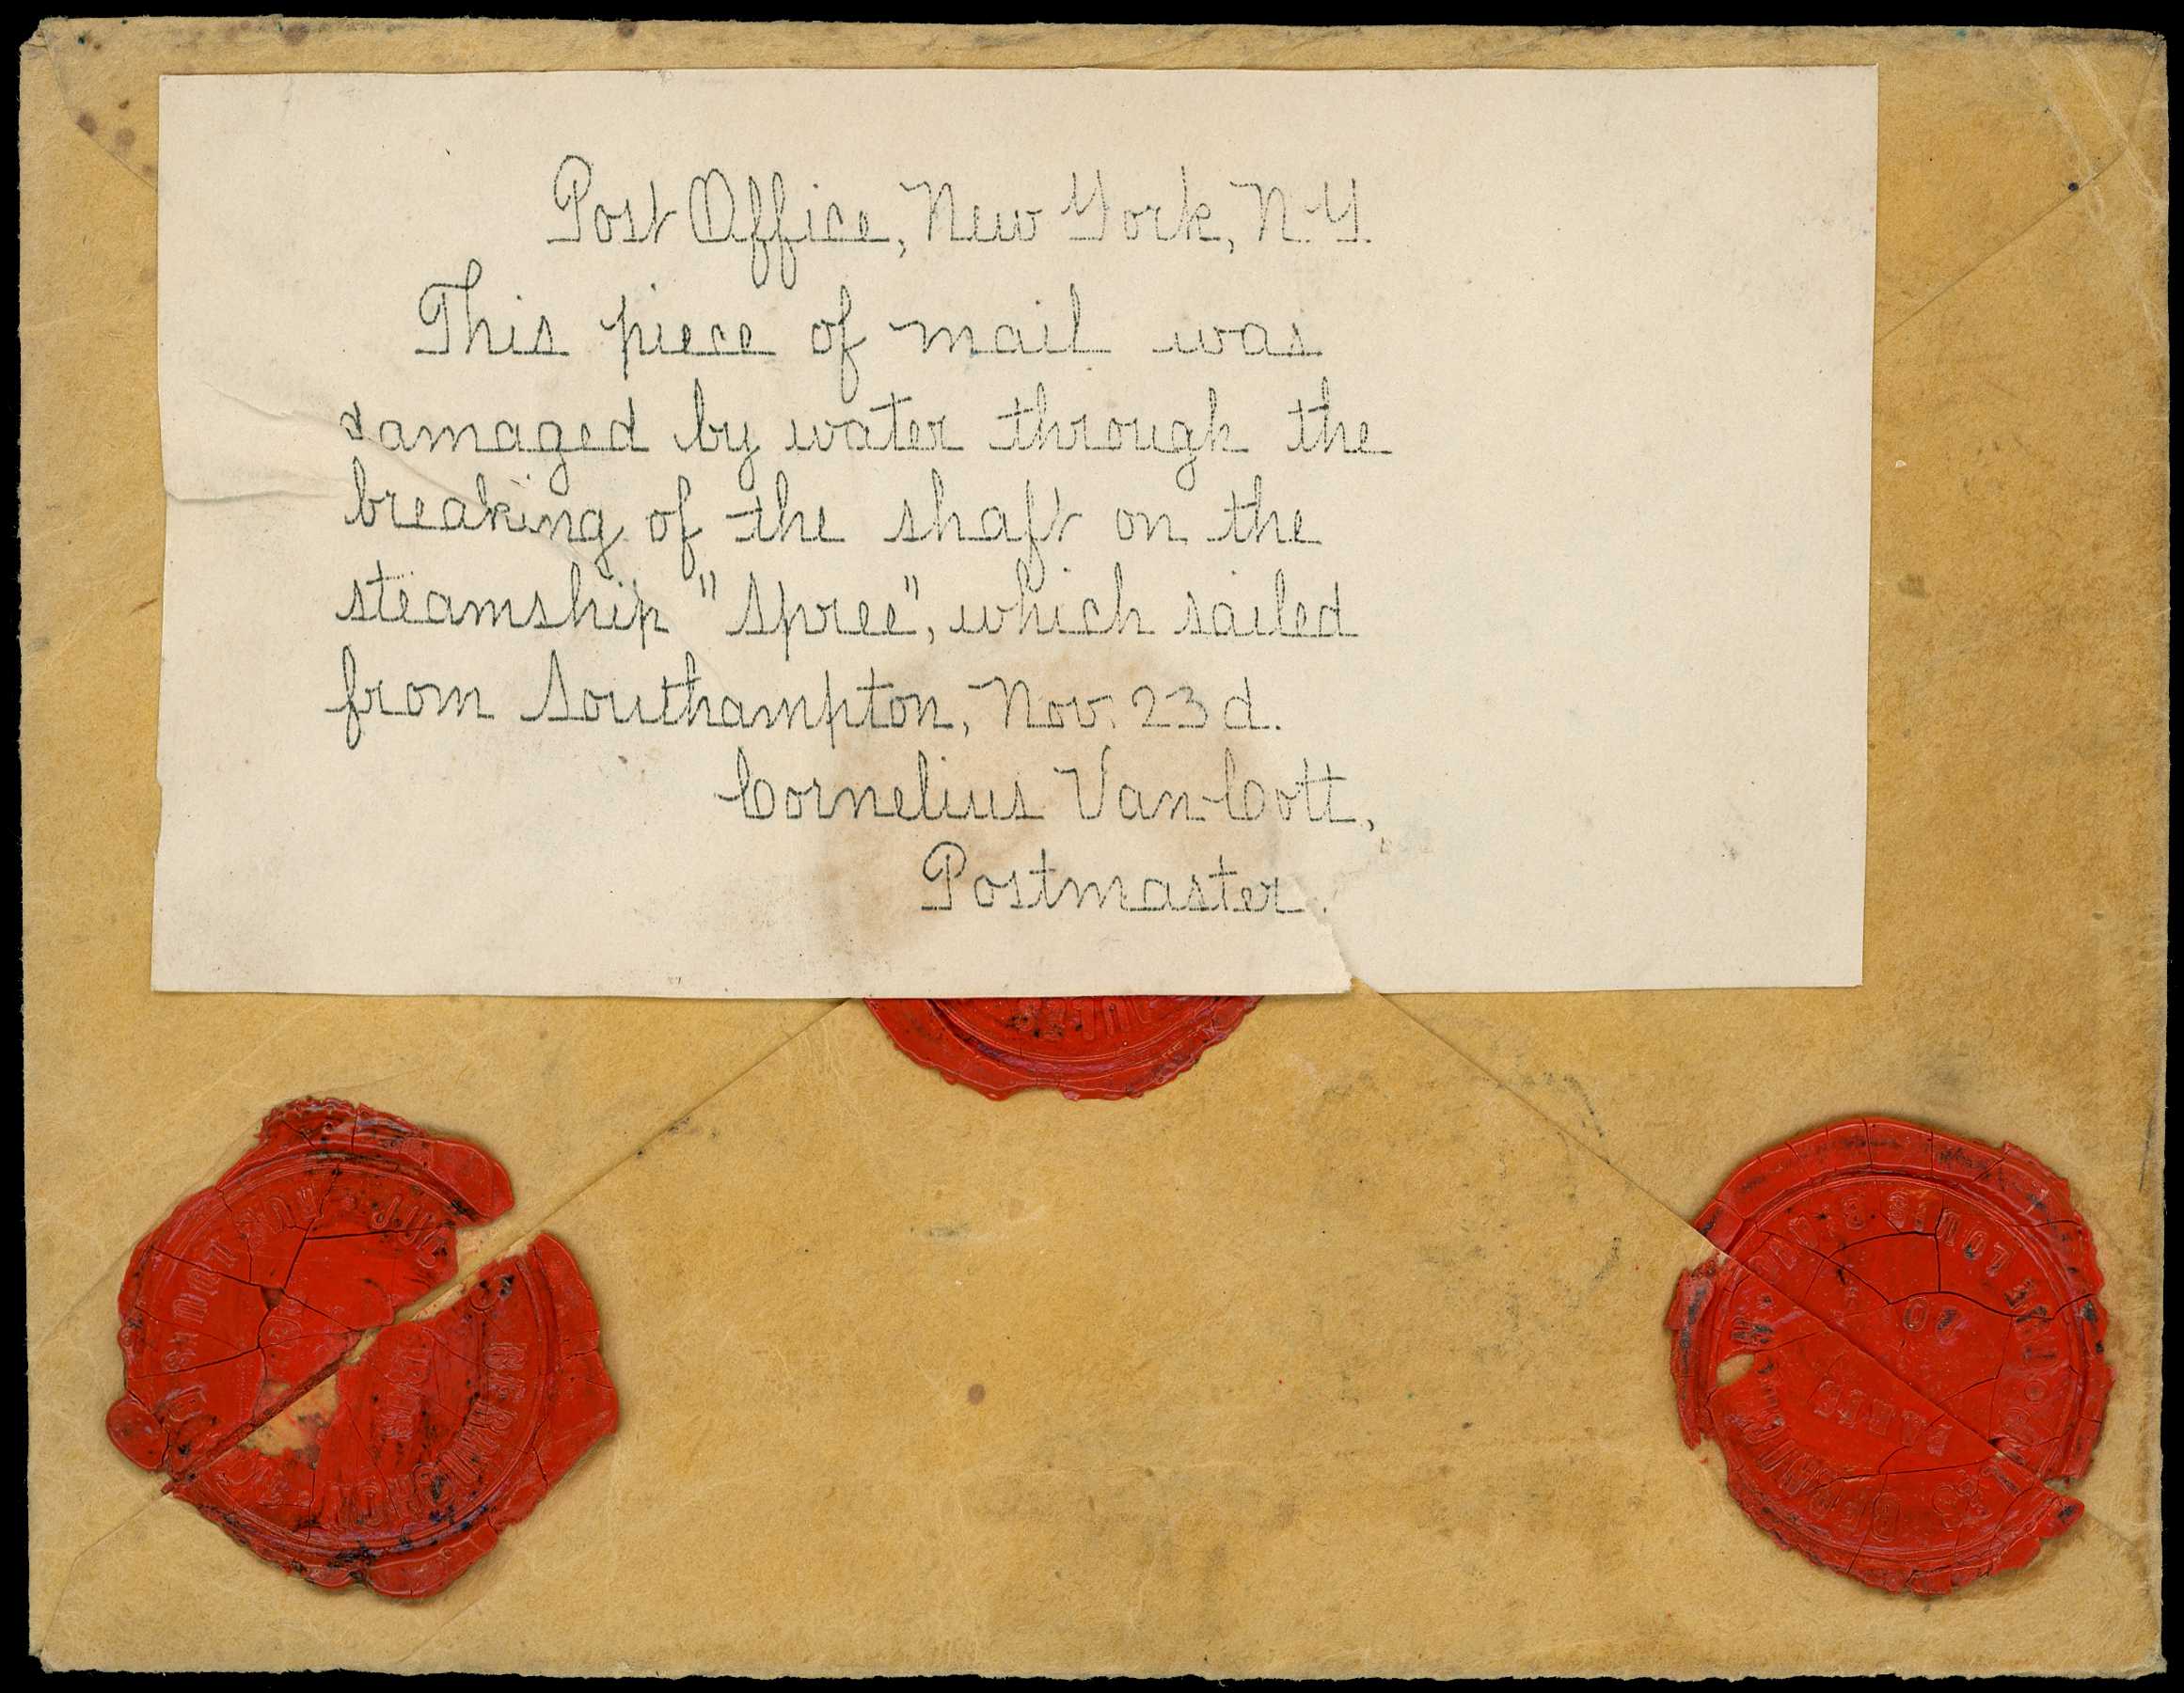 Post Office, New York, N.Y.
This piece of mail was
damaged by water through the
breaking of the shaft on the
steamship "Spree", which sailed
from Southampton, Nov. 23d.
Cornelius Van Cott,
Postmaster.